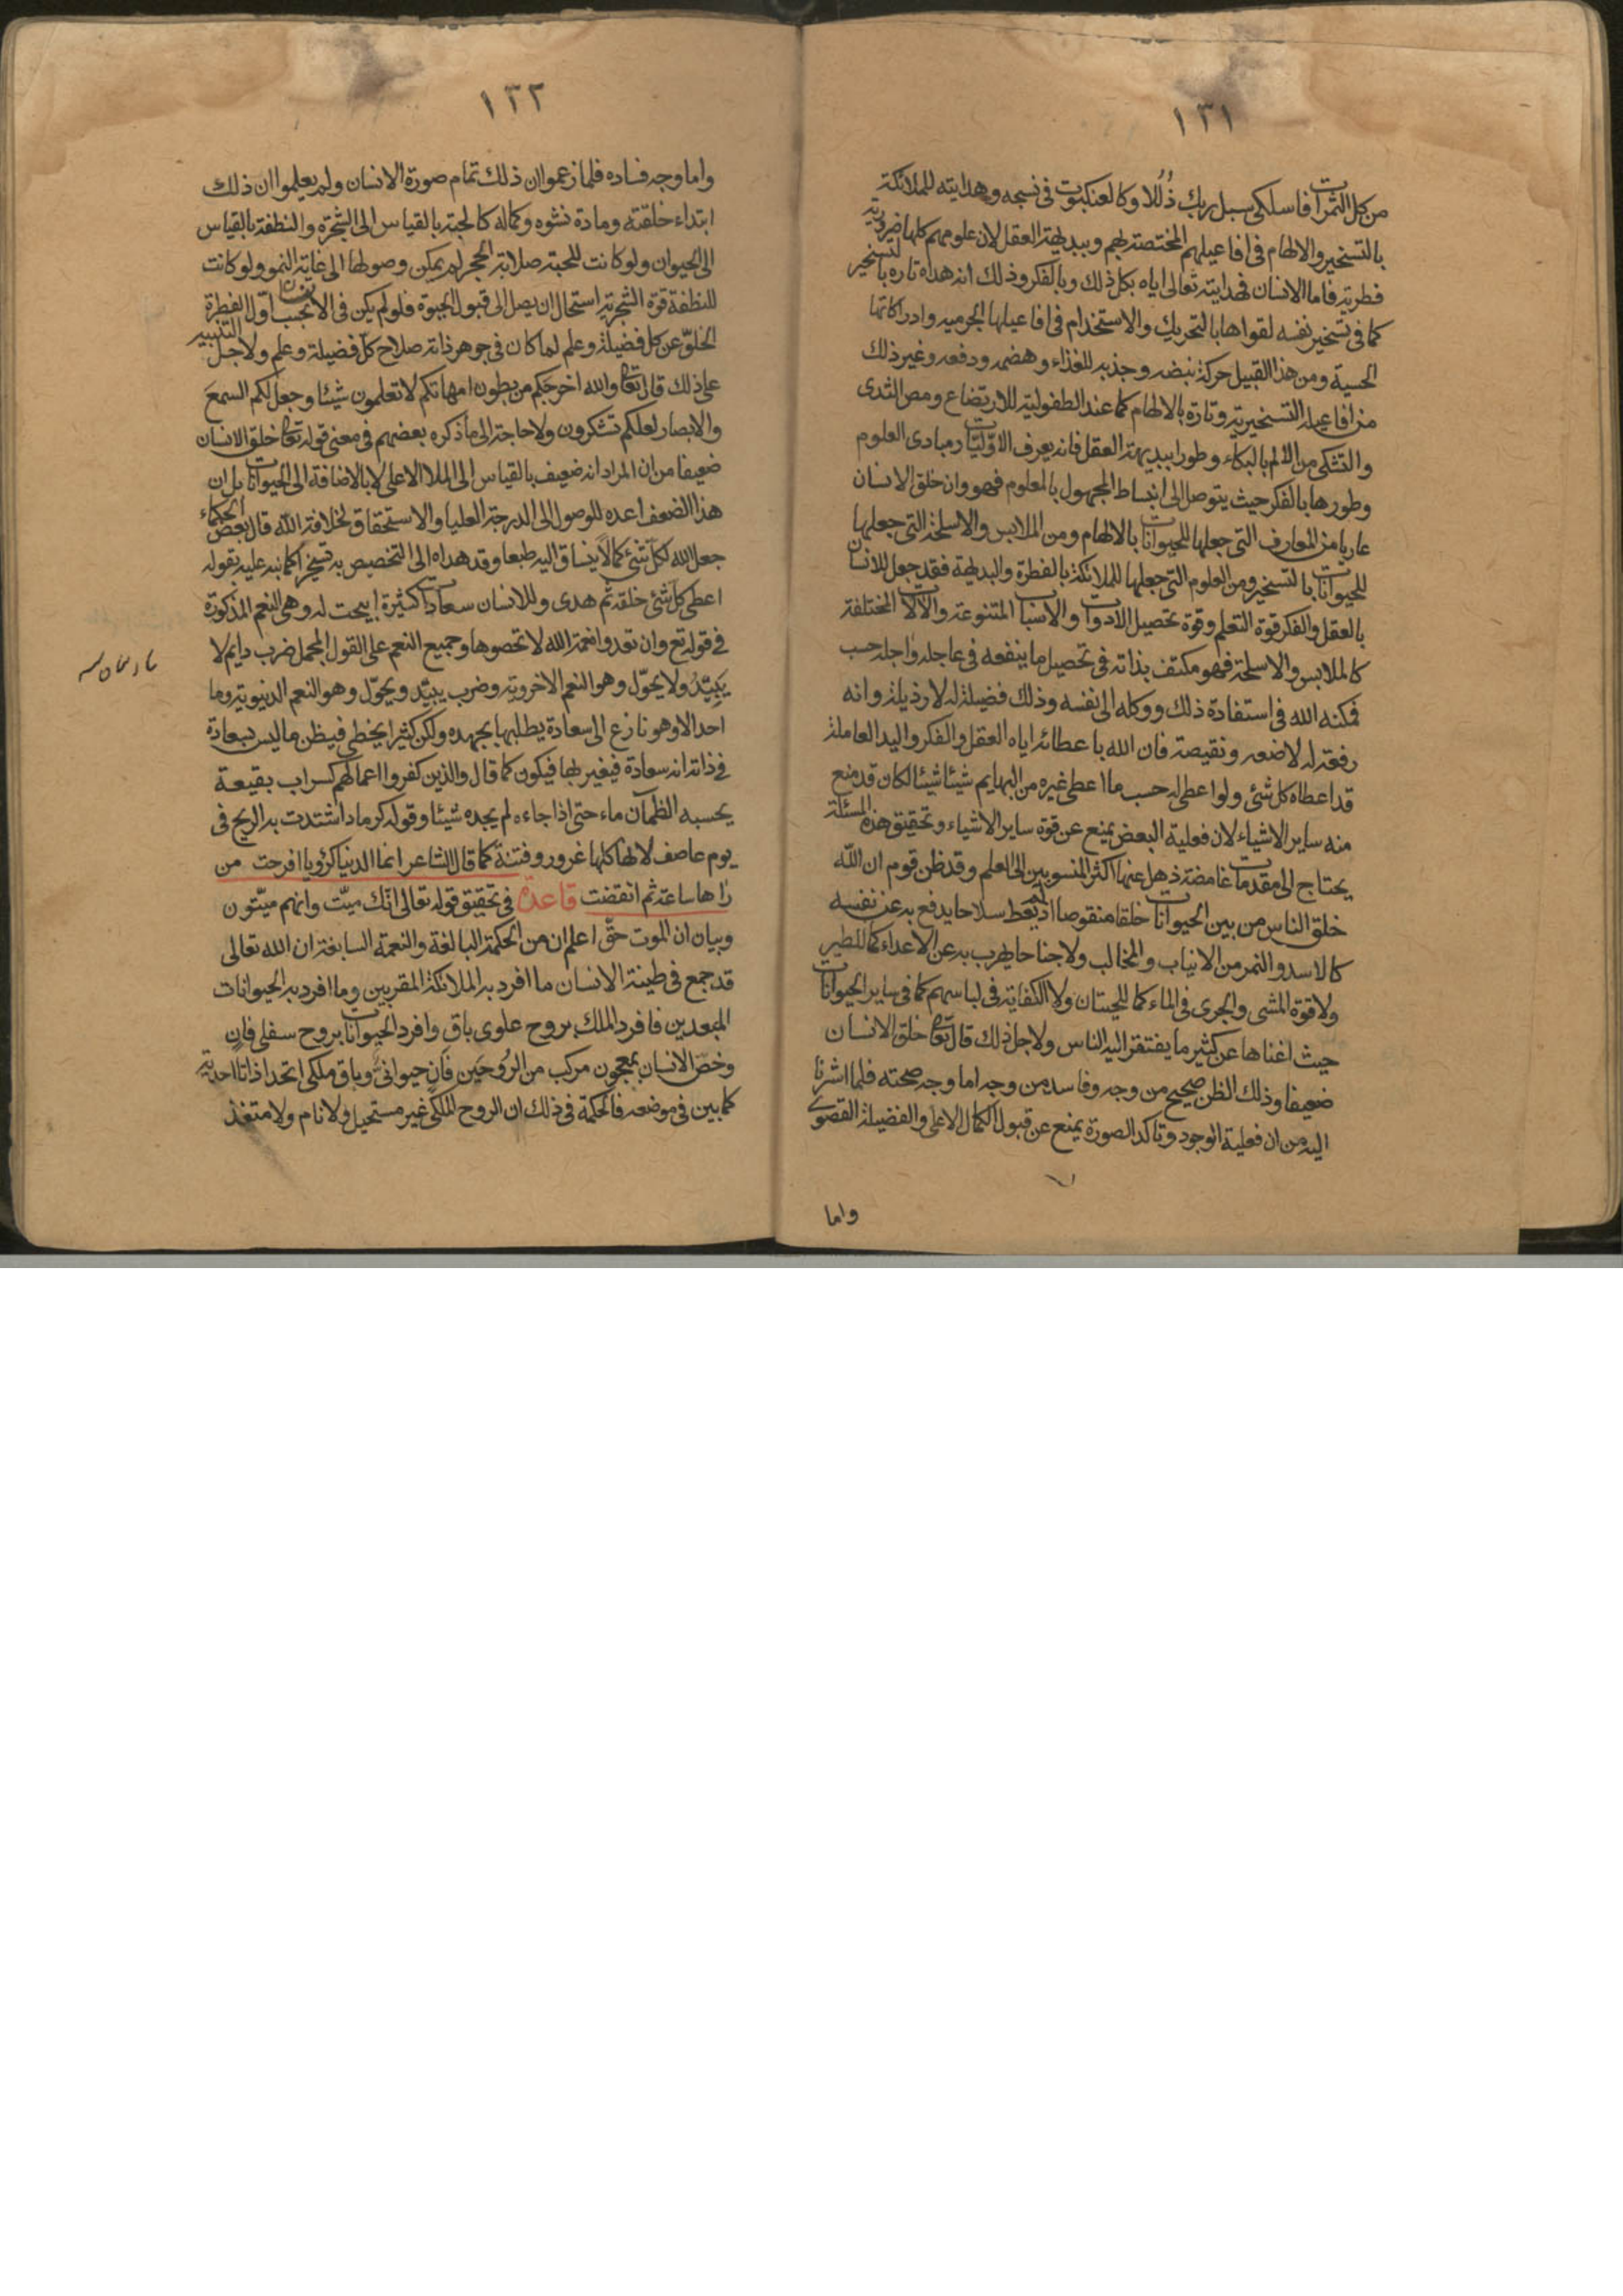 ١٣١
من كل الثمرات فاسلكى سبل ربك ذُلُلا وكالعنكبوت فى نسجه وهدايته للملائكة
بالتسخير والالهام فى افاعيلهم المختصة بهم وببديهة العقل لان علومهم كلها ضرورية
فطرية فاما الانسان فهدايته تعالى اياه بكل ذلك وبالفكر وذلك انه هداه تارة بالتسخير
كما فى تسخير نفسه لقواها بالتحريك والاستخدام فى افاعيلها الجرمية وادراكاتها
الحسية ومن هذا القبيل حركة نبضه وجذبه للغذاء وهضمه ودفعه وغير ذلك
من افاعيله التسخيرية وتارة بالالهام كما عند الطفولية للارتضاع ومص الثدى
والتشكى من الالم بالبكاء وطورا ببديهة العقل فانه يعرف الاوّليّات مبادى العلوم
وطورها بالفكر حيث يتوصل الى انبساط المجهول بالمعلوم فهو وان خلق الانسان
عاريا من المعارف التى جعلها للحيوانات بالالهام ومن الملابس والاسلحة التى جعلها
للحيوانات بالتسخير ومن العلوم التى جعلها للملائكة بالفطرة والبديهة فقد جعل للانسان
بالعقل والفكر قوة التعلم وقوة تحصيل الادوات والاسباب المتنوعة والآلات المختلفة
كالملابس والاسلحة فهو مكتف بذاته فى تحصيل ما ينفعه فى عاجله واجله حسب
مكنه الله فى استفادة ذلك ووكله الى نفسه وذلك فضيلة له لا رذيلة وانه
رفعة له لا ضعه ونقيصة فان الله باعطائه اياه العقل والفكر واليد العاملة
قد اعطاه كل شئ ولو اعطى له حسب ما اعطى غيره من البهايم شيئا شيئا لكان قد منع
منه ساير الاشياء لان فعلية البعض يمنع عن قوة ساير الاشياء وتحقيق هذه المسئلة
يحتاج الى مقدمات غامضة ذهل عنها اكثر المنسوبين الى العلم وقد ظن قوم ان الله
خلق الناس من بين الحيوانات خلقا منقوصا اذ لم يعط سلاحا يدفع به عن نفسه
كالاسد والنمر من الانياب والمخالب ولا جناحا يهرب به عن الاعداء كما للطير
ولا قوة المشى والجرى فى الماء كما للحيتان ولا الكفاية فى لباسهم كما فى ساير الحيوانات
حيث اغناها عن كثير ما يفتقر اليه الناس ولاجل ذلك قال تعا خلق الانسان
ضعيفا وذلك الظن صحيح من وجه وفاسد من وجه اما وجه صحته فلما اشرنا
اليه من ان فعلية الوجود وتاكد الصورة يمنع عن قبول الكمال الاعلى والفضيلة القصوى
واما
١٣٢
واما وجه فساده فلما زعموا ان ذلك تمام صورة الانسان ولم يعلموا ان ذلك
ابتداء خلقته ومادة نشوه وكماله كالحبة بالقياس الى الشجرة والنطفة بالقياس
الى الحيوان ولو كانت للحبة صلابة الحجر لم يمكن وصولها الى غاية النمو ولو كانت
للنطفة قوة الشجرية استحال ان يصل الى قبول الحيوة فلو لم يكن فى الانسان بحسب اوّل الفطرة
الخلوّ عن كل فضيلة وعلم لما كان فى جوهر ذاته صلاح كل فضيلة وعلم ولاجل التنبيه
على ذلك قال تعا والله اخرجكم من بطون امهاتكم لا تعلمون شيئا وجعل لكم السمعَ
والابصار لعلكم تشكرون ولا حاجة الى ما ذكره بعضهم فى معنى قوله تعا خلق الانسان
ضعيفا من ان المراد انه ضعيف بالقياس الى الملاء الاعلى لا بالاضافة الى الحيوانات بل ان
هذا الضعف اعده للوصول الى الدرجة العليا والاستحقاق لخلافة الله قال بعض الحكماء
جعل الله لكل شئ كمالا ينساق اليه طبعا وقد هداه الى التخصيص به تسخيرا كما نبه عليه بقوله
اعطى كل شئ خلقه ثم هدى وللانسان سعادات كثيرة ابيحت له وهى النعم المذكورة
فى قوله تع وان تعدوا نعمة الله لا تحصوها وجميع النعم على القول المجمل ضرب دايم لا
يَبيّدُ ولا يحوّل وهو النعم الاخروية وضرب يبيّد ويحوّل وهو النعم الدنيوية وما
احد الا وهو نازع الى سعادة يطلبها بجهده ولكن كثيرا يخطى فيظن ما ليس بسعادة
فى ذاته انه سعادة فيغير بها فيكون كما قال والذين كفروا اعمالهم كسراب بقيعة
يحسبه الظمآن ماء حتى اذا جاءه لم يجده شيئا وقوله كرماد اشتدت به الريح فى
يوم عاصف لانها كلها غرور وفتنة كما قال الشاعر انما الدنيا كرؤيا افرحت من
رٰاها ساعة ثم انقضت قاعدة فى تحقيق قوله تعالى انّك ميّت وانهم ميّتون
وبيان ان الموت حقّ اعلم ان من الحكمة البالغة والنعمة السابغة ان الله تعالى
قد جمع فى طينة الانسان ما افرد به الملائكة المقربين وما افرد به الحيوانات
المبعدين فافرد الملك بروح علوى باق وافرد الحيوانات بروح سفلى فانٍ
وخصّ الانسان بمعجون مركب من الرُوحَين فانٍ حيوانىّ وباق ملكى اتحدا ذاتا احدية
كما بين فى موضعه فالحكمة فى ذلك ان الروح الملكى غير مستحيل ولا نام ولا متغذ